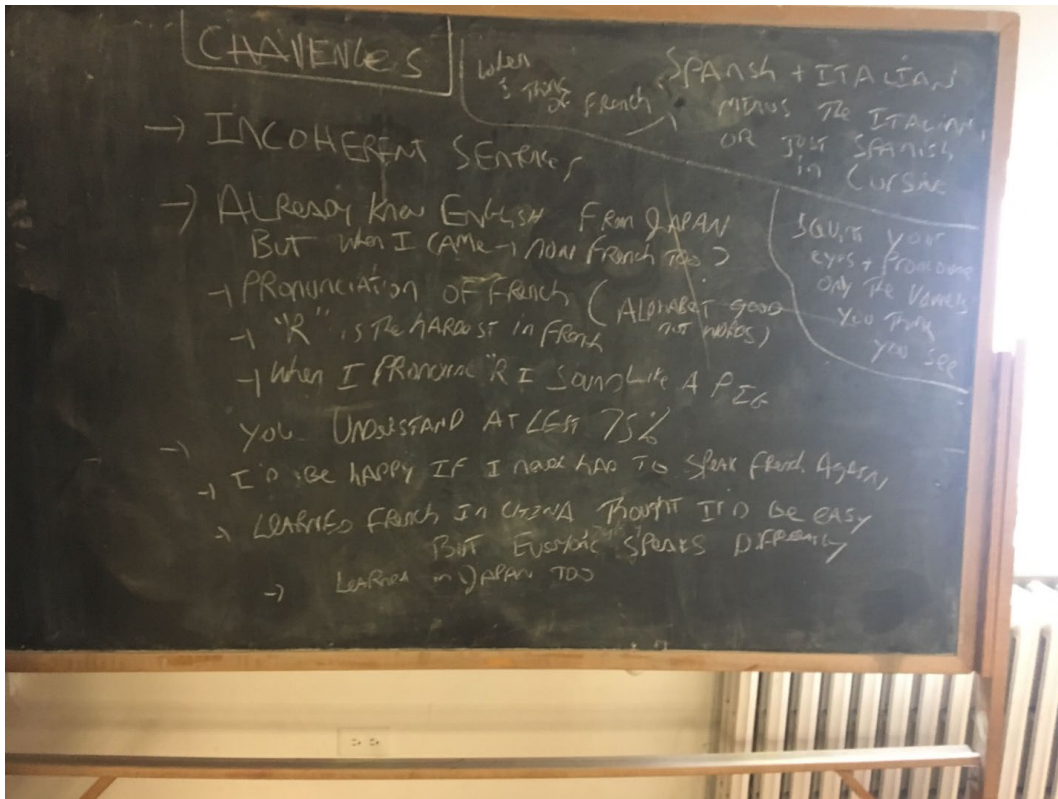 CHALLENGES
When
I think
of French
SPANISH + ITALIAN
MINUS The ITALIAN,
OR JUST SPANISH
in CURSIVE
→ INCOHERENT SENTENCES
→ ALREADY KNOW ENGLISH FROM JAPAN
BUT When I CAME → NOW FRENCH TOO?
→ PRONUNCIATION OF FRENCH (ALPHABET GOOD
not words)
→ "R" is the hardest in French
→ When I PRONOUNCE "R I SOUND Like A PIG
→ you UNDERSTAND AT LEST 75%
→ I'D BE hAPPY IF I never hAD TO SPEAK French AgAin
→ LEARNED FRENCH In CHINA Thought IT'D BE eASY
BUT EVERYONE SPEAKS DIFFERENTLY
→ LEARNED in JAPAN TOO
your
eyes + PRONOUNCE
only The Vowels
you Think
you see